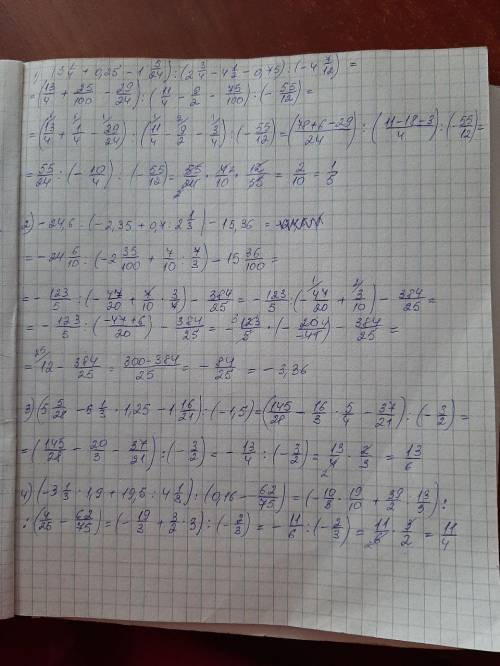 1) (3 1/4 + 0,25 - 1 5/24) : (2 3/4 - 4 1/2 - 0,75) : (-4 7/12) =
= (13/4 + 25/100 - 29/24) : (11/4 - 9/2 - 75/100) : (- 55/12) =
= (13/4 + 1/4 - 29/24) : (11/4 - 9/2 - 3/4) : (- 55/12) = (78+6-29/24) : (11-18-3/4) : (- 55/12) =
= 55/24 : (- 10/4) : (- 55/12) = 55/24 · 4/10 · 12/55 = 2/10 = 1/5
2) - 24,6 : (-2,35 + 0,7 : 2 1/3) - 15,36 =
= -24 6/10 : (-2 35/100 + 7/10 : 7/3) - 15 36/100 =
= - 123/5 : (- 47/20 + 7/10 · 3/7) - 384/25 = - 123/5 : (- 47/20 + 3/10) - 384/25 =
= - 123/5 : (-47+6/20) - 384/25 = - 123/5 · (- 20/-41) - 384/25 =
= 12 - 384/25 = 300-384/25 = - 84/25 = -3,36
3) (5 5/28 - 5 1/3 · 1,25 - 1 16/21) : (-1,5) = (145/28 - 16/3 · 5/4 - 37/21) : (- 3/2) =
= (145/28 - 20/3 - 37/21) : (- 3/2) = - 13/4 : (- 3/2) = 13/4 · 2/3 = 13/6
4) (-3 1/3 · 1,9 + 19,5 : 4 1/3) : (0,16 - 62/75) = (- 10/3 · 19/10 + 39/2 : 13/3) :
: (4/25 - 62/75) = (- 19/3 + 3/2 · 3) : (- 2/3) = - 11/6 : (- 2/3) = 11/6 · 3/2 = 11/4